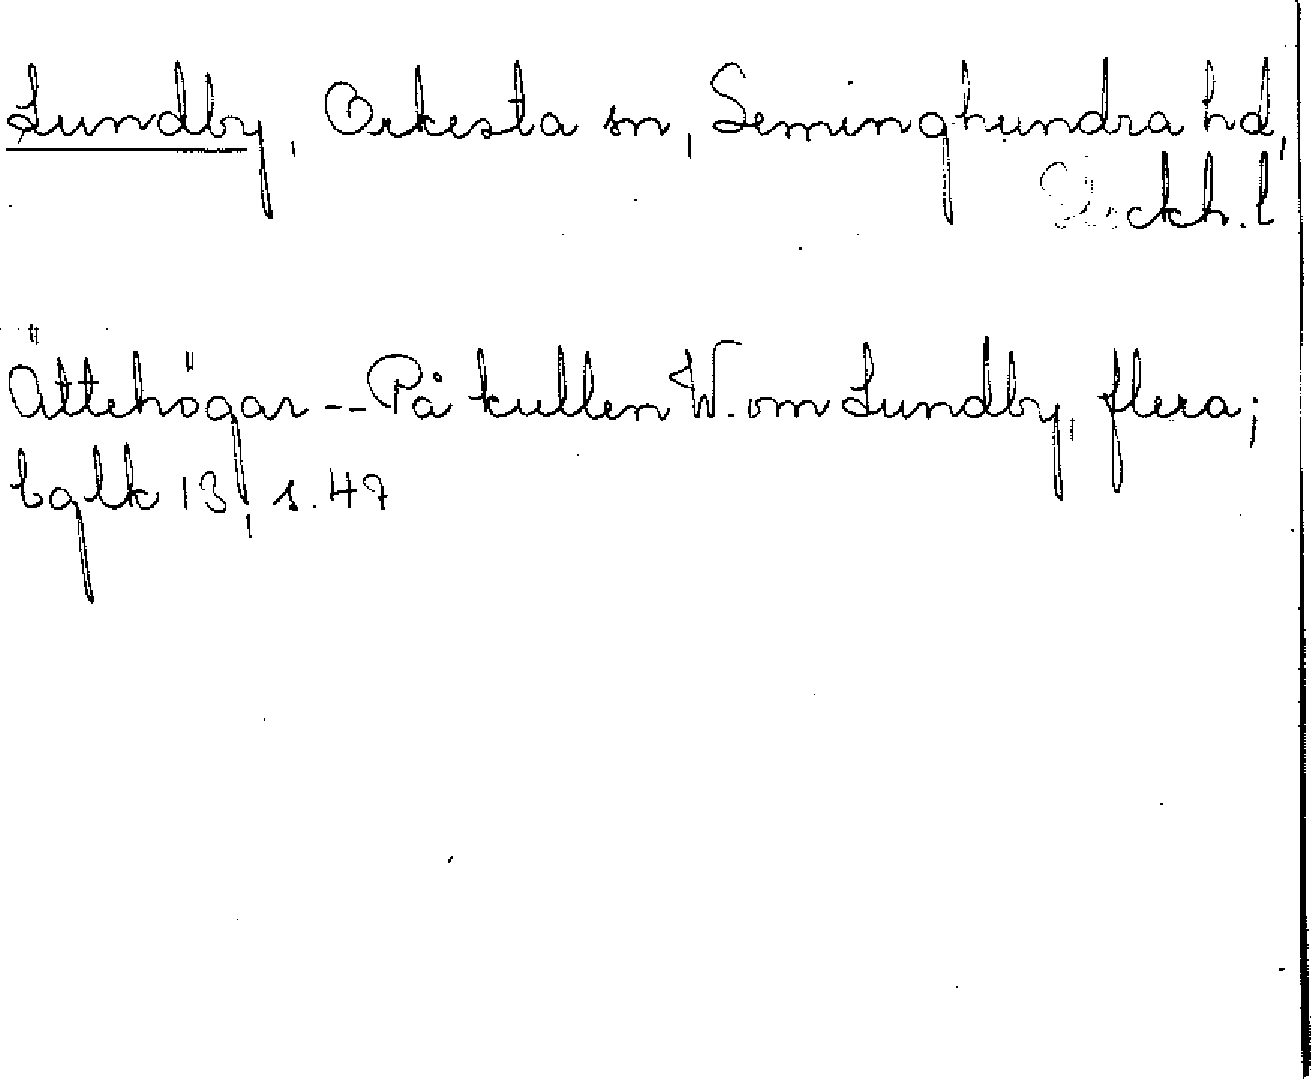 Lundby, Orkesta sn, Seminghundra hd,
Stockh. l
Ättehögar -- På kullen W. om Lundby, flera;
bglk 13, s. 47